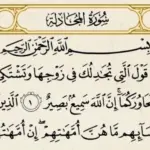 سُورَةُ المُجَادلَةِ
بِسْمِ اللَّهِ الرَّحْمَٰنِ الرَّحِيمِ
قَوْلَ الَّتِي تُجَٰدِلُكَ فِي زَوْجِهَا وَتَشْتَكِ
اوُرَكُمَا إِنَّ اللَّهَ سَمِيعٌ بَصِيرٌ ١ الَّذِينَ
سَآئِهِم مَّا هُنَّ أُمَّهَٰتِهِمْ ۖ إِنْ أُمَّهَٰتُ